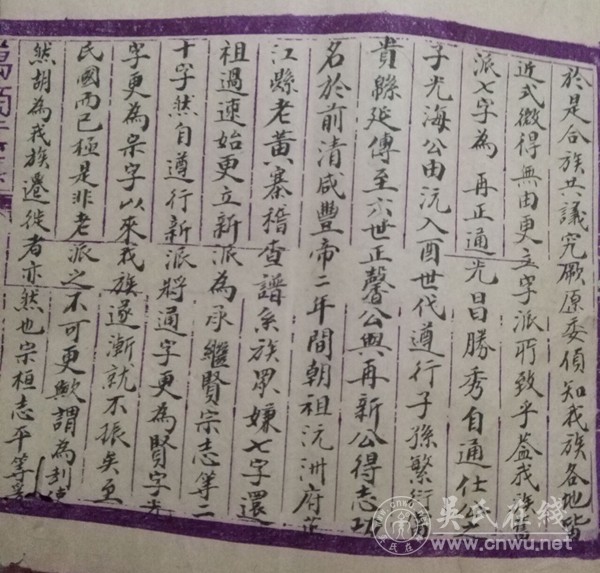 於是合族共議究厥原委偵知我族各地皆
近式微得無由更立字派所致乎蓋我族舊
派七字為再正通光昌勝秀自通仕公之
子光海公由沅入酉世代遵行子孫繁衍
貴縣延傳至六世正馨公與再新公得志功
名於前清咸豐帝二年間朝祖沅洲府芷
江縣老黃寨稽查譜系族眾嫌七字還
祖過速始更立新派為承繼賢宗志等二
十字然自遵行新派將通字更為賢字光
字更為宗字以來我族遂漸就不振矣至
民國而已極是非老派之不可更歟謂為
然胡為我族遷徙者亦然也宗桓志平等
吳氏在线
www.cnwu.net